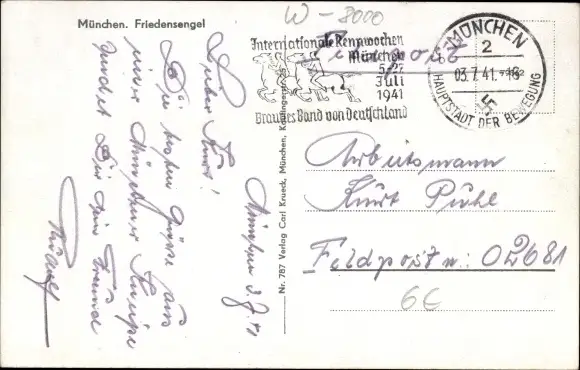 München. Friedensengel
W-8000
Internationale Rennwochen
München
5.-27.
Juli
1941
Braunes Band von Deutschland
Feldpost
MÜNCHEN
2
03.7.41.-18
HAUPTSTADT DER BEWEGUNG
München 3.7.41
Lieber Kurt!
Die frohen Grüße aus
einer Münchner Kneipe
sendet Dir Dein Freund
Nr. 787 Verlag Carl Krueck, München, Kaulingerstr. 35
Arbeitsmann
Kurt Puhl
Feldpost n: 02681
6€